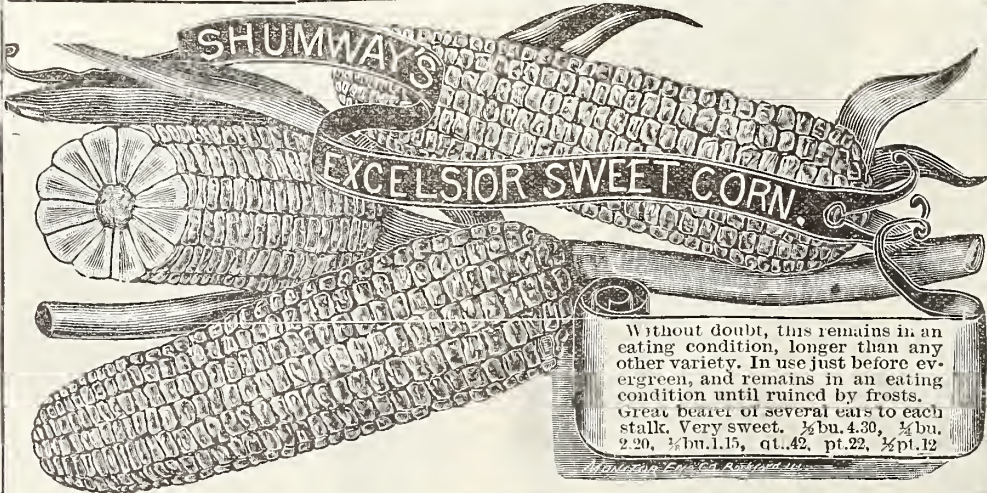 SHUMWAY'S
EXCELSIOR SWEET CORN.
Without doubt, this remains in an
eating condition, longer than any
other variety. In use just before ev-
ergreen, and remains in an eating
condition until ruined by frosts.
Great bearer of several ears to each
stalk. Very sweet. ½bu. 4.30, ¼bu.
2.20, ⅛bu.1.15, qt..42, pt.22, ½pt.12
Eng. Co. Rockford Ill.